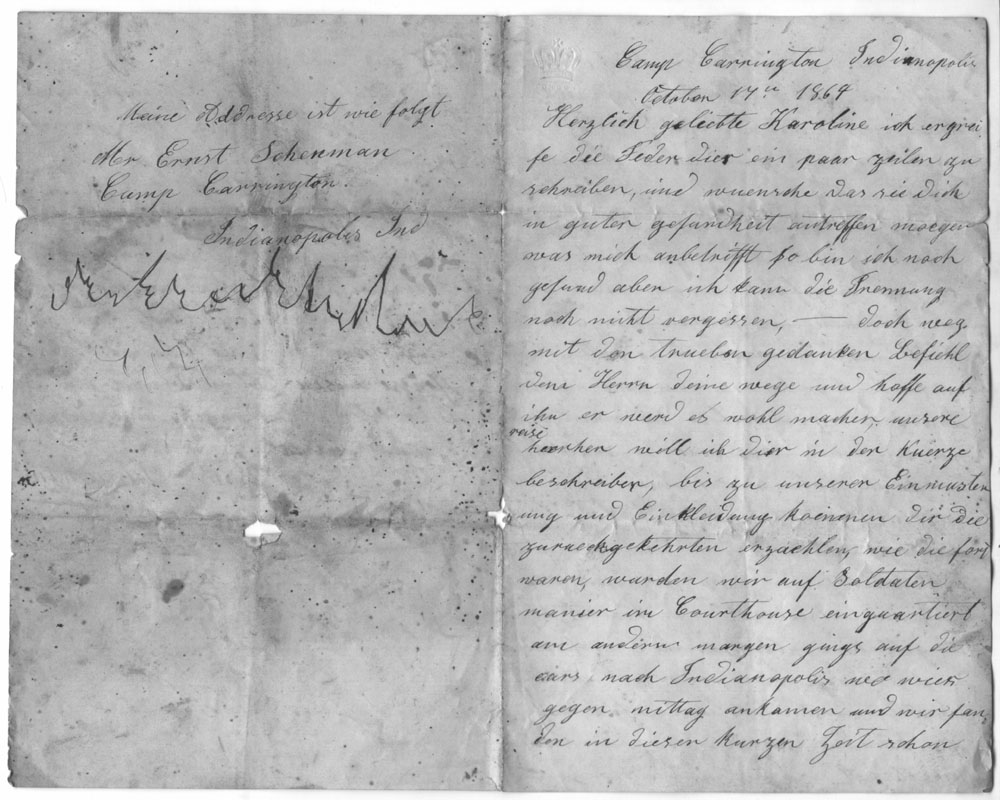 Meine Addresse ist wie folgt
Mr Ernst Schenman
Camp Carrington
Indianopolis Ind
Camp Carrington Indianopolis
October 17 1864
Herzlich geliebte Karoline ich ergrei
fe die Feder dier ein paar zeilen zu
schreiben, und wuensche das sie dich
in guter gesundheit antreffen moegen
was mich anbetrifft so bin ich noch
gesund aber ich kann die Trennung
noch nicht vergessen, — doch weg
mit den trueben gedanken befiehl
dem Herrn deine wege und hoffe auf
ihn er werd es wohl machen, unsere
reise
hierher will ich dier in der Kuerze
beschreiben, bis zu unserer Einmuster
ung und Einkleidung koennen dir die
zurueckgekehrten erzaehlen, wie die fort
waren, wurden wir auf Soldaten
manier im Courthouse einquartiert
am andern margen gings auf die
cars nach Indianopolis wo wier
gegen mittag ankamen und wir fan
den in dieser kurzen Zeit schon